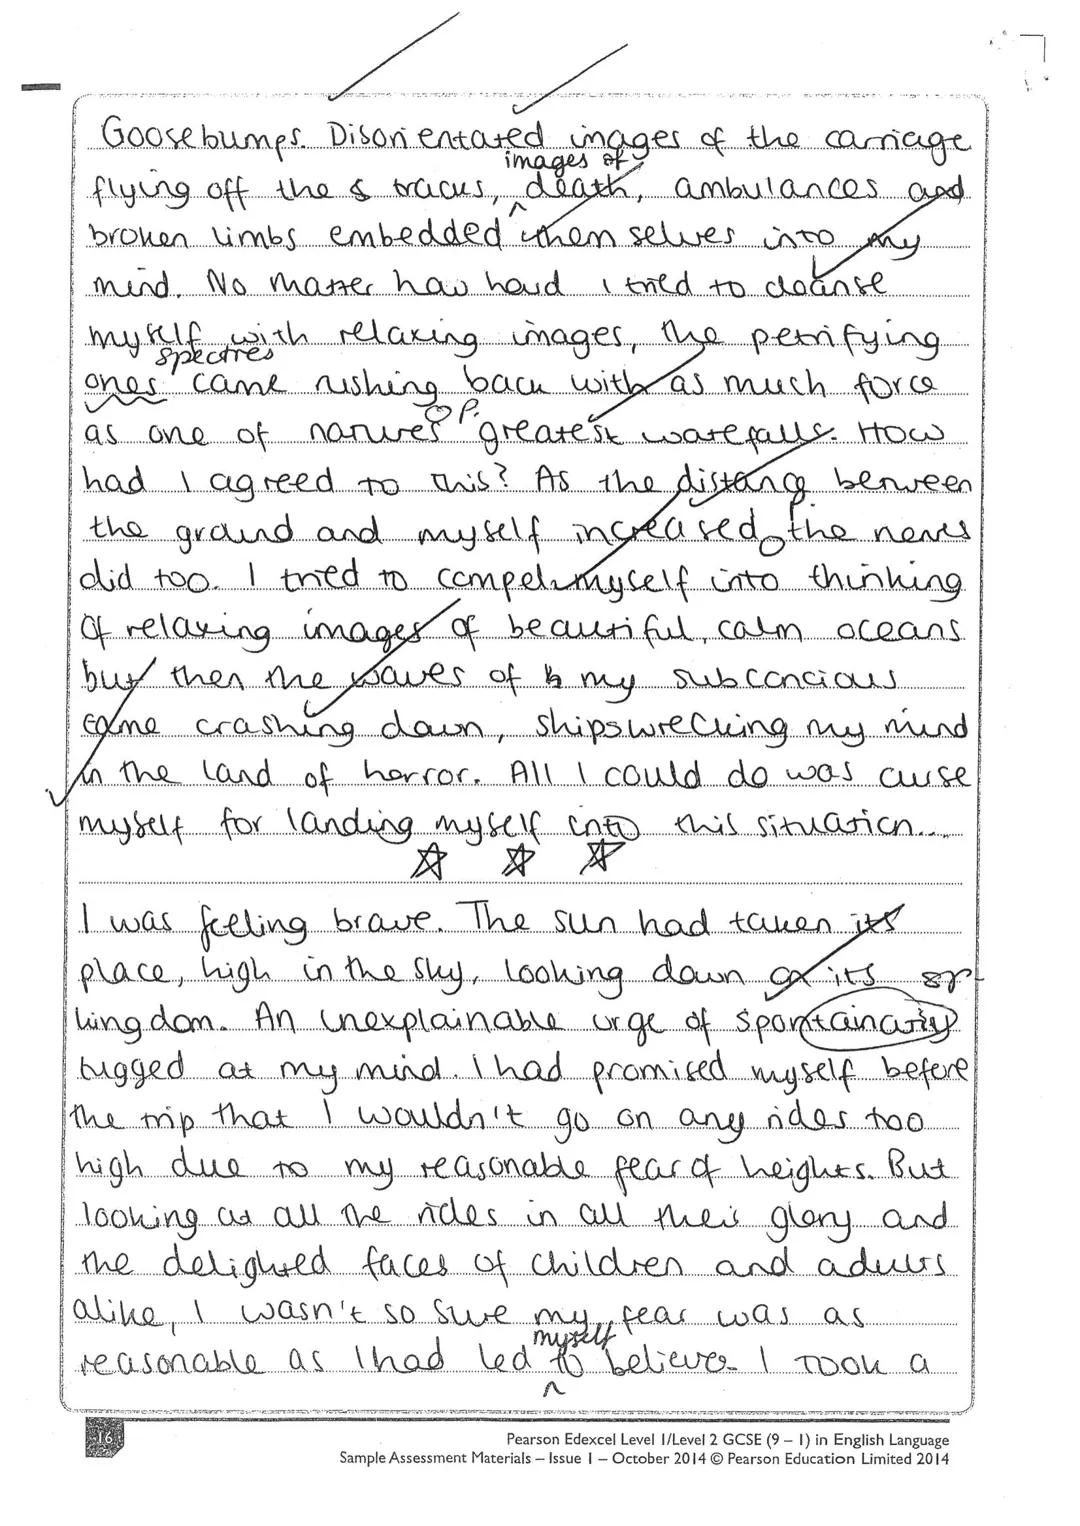 Goosebumps. Disorientated images of the carriage
images of
flying off the tracks, death, ambulances and
broken limbs embedded themselves into my
mind. No matter how hard I tried to cleanse
myself with relaxing images, the petrifying
spectres
ones came rushing back with as much force
as one of natures greatest waterfalls. How
had I agreed to this? As the distance between
the ground and myself increased, the nerves
did too. I tried to compel myself into thinking
of relaxing images of beautiful, calm oceans
but then the waves of my subconcious
came crashing down, shipswrecking my mind
in the land of horror. All I could do was curse
myself for landing myself into this situation...
I was feeling brave. The sun had taken its
place, high in the sky, looking down on its sp
kingdom. An unexplainable urge of spontainarity
tugged at my mind. I had promised myself before
the trip that I wouldn't go on any rides too
high due to my reasonable fear of heights. But
looking at all the rides in all their glory and
the delighted faces of children and adults
alike, I wasn't so sure my fear was as
myself
reasonable as I had led to believe. I took a
16
Pearson Edexcel Level 1/Level 2 GCSE (9 – 1) in English Language
Sample Assessment Materials – Issue 1 – October 2014 © Pearson Education Limited 2014